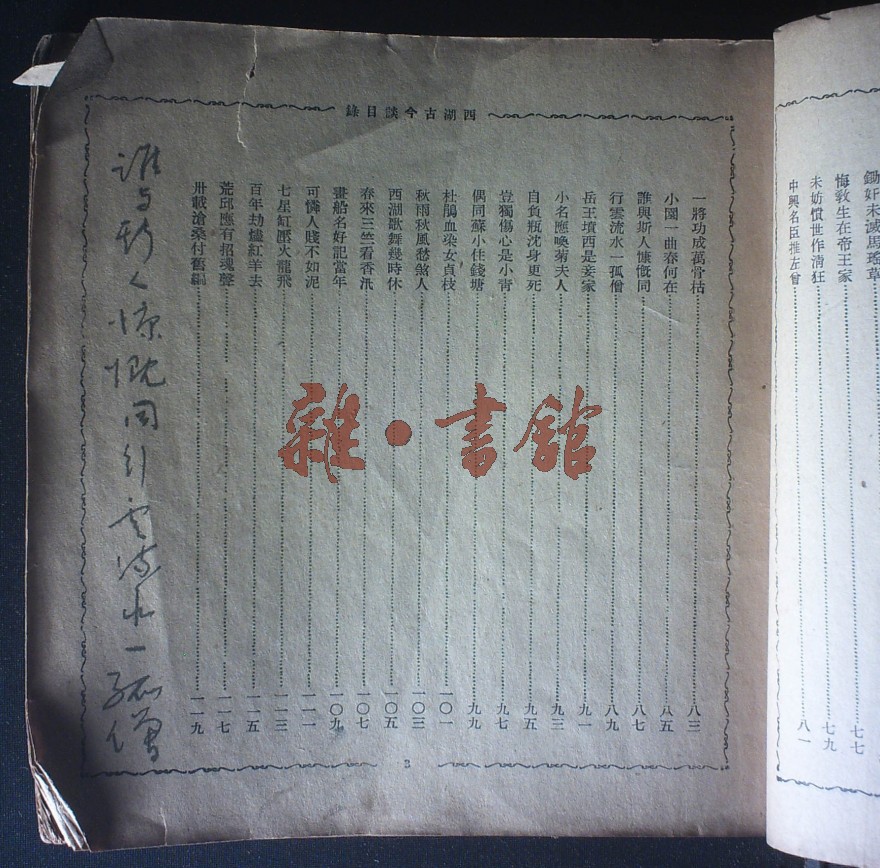 鋤奸未滅馬瑤草……七七
悔教生在帝王家……七九
未妨慣世作清狂
中興名臣推左曾……八一
西湖古今談目錄
一將功成萬骨枯……八三
小園一曲春何在……八五
誰與斯人慷慨同……八七
行雲流水一孤僧……八九
岳王墳西是妾家……九一
小名應喚菊夫人……九三
自負瓶沈身更死……九五
豈獨傷心是小青……九七
偶同蘇小住錢塘……九九
杜鵑血染女貞枝……一〇一
秋雨秋風愁煞人……一〇三
西湖歌舞幾時休……一〇五
春來三竺看香汛……一〇七
畫船名好記當年……一〇九
可憐人賤不如泥……一一一
七星缸壓火龍飛……一一三
百年劫燼紅羊去……一一五
荒邱應有招魂聲……一一七
卅載滄桑付舊編……一一九
3
誰与斯人慷慨同行雲流水一孤僧
雜·書館